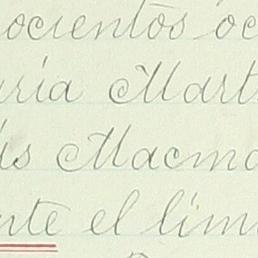 ocientos oc
ría Mart
ús Macma
nte el lím